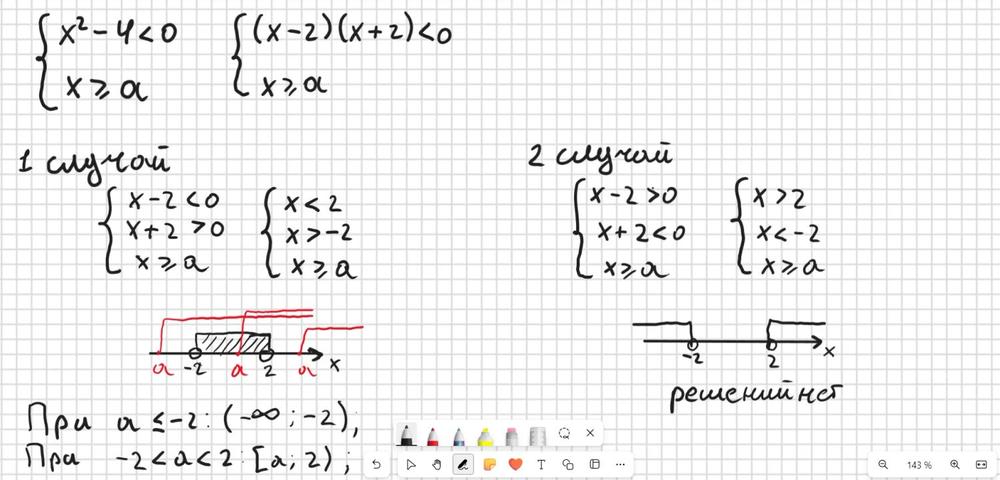 x² - 4 < 0
x ⩾ a
(x-2)(x+2) < 0
x ⩾ a
1 случай
x - 2 < 0
x + 2 > 0
x ⩾ a
x < 2
x > -2
x ⩾ a
2 случай
x - 2 > 0
x + 2 < 0
x ⩾ a
x > 2
x < -2
x ⩾ a
a -2 a 2 a x
-2 2 x
решений нет
При a ≤ -2: (-∞; -2);
При -2 < a < 2: [a; 2);
T
143 %